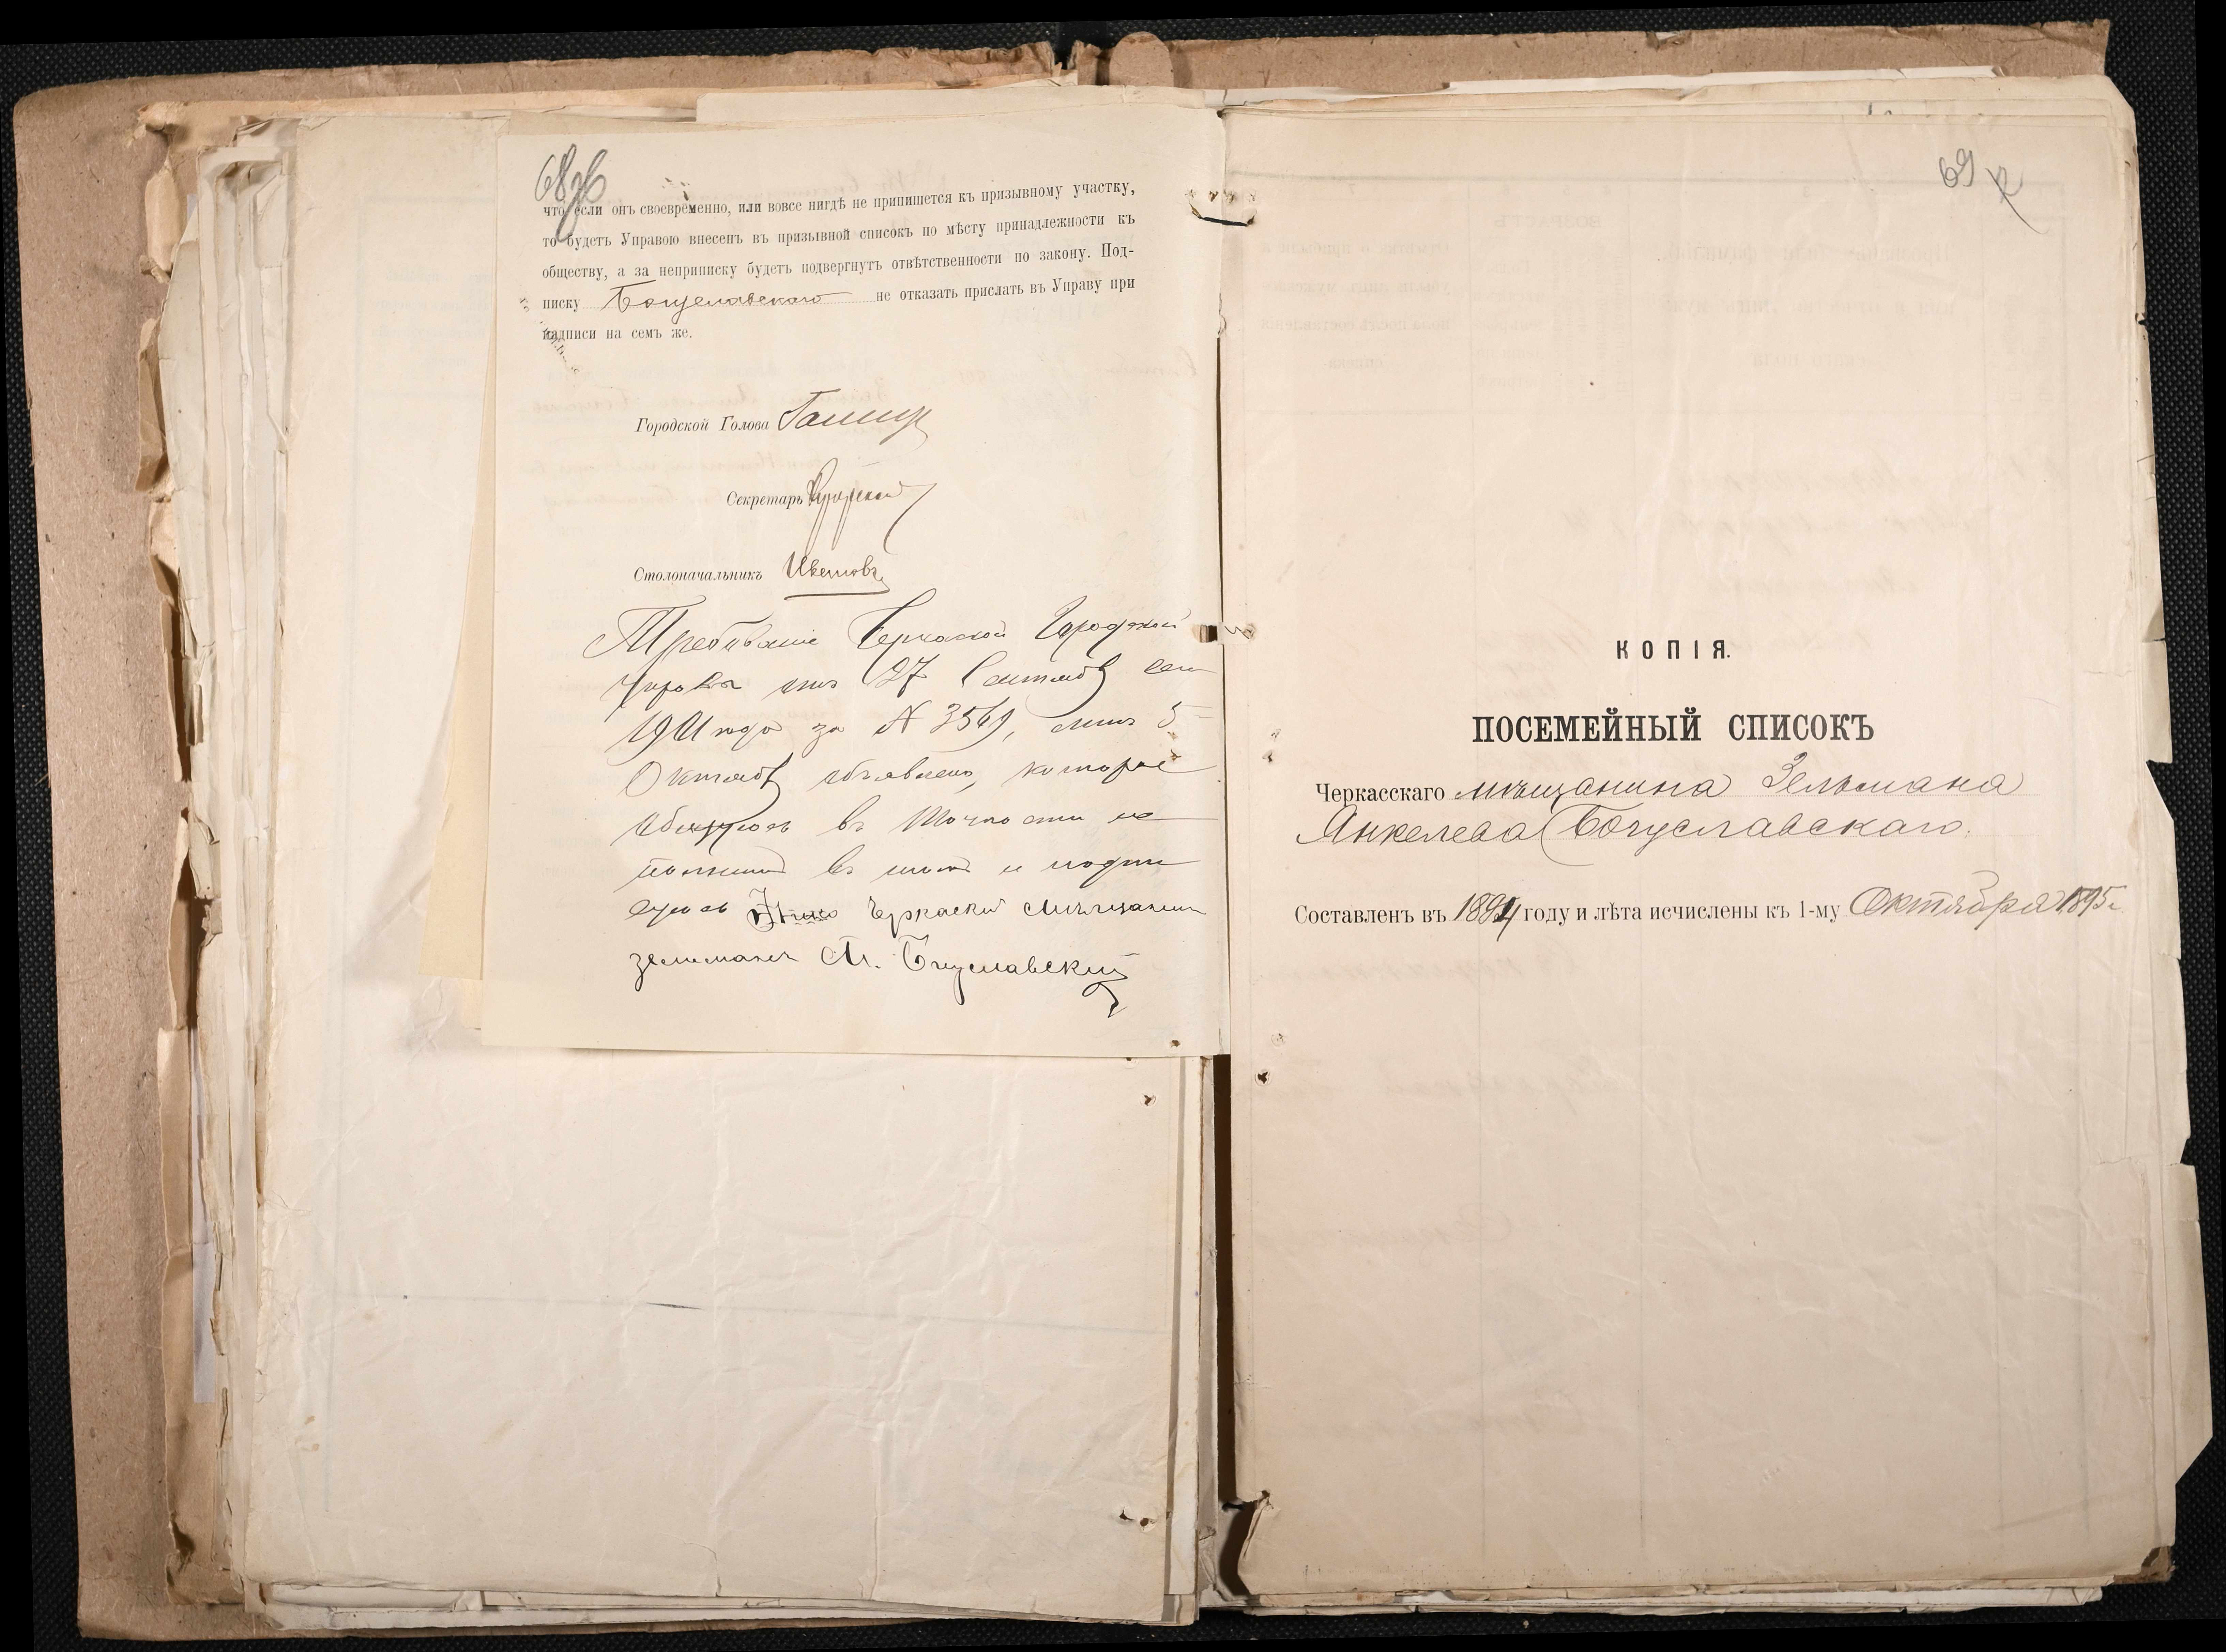 68 об
что если онъ своевременно, или вовсе нигдѣ не припишется къ призывному участку,
то будетъ Управою внесенъ въ призывной списокъ по мѣсту принадлежности къ
обществу, а за неприписку будетъ подвергнутъ отвѣтственности по закону. Под-
писку Богуславскаго не отказать прислать въ Управу при
надписи на семъ же.
Городской Голова
Секретарь
Столоначальникъ Цвѣтовъ
Требованіе Черкаской Городской
Управы отъ 27 Сентября сего
1901 года за N 3569, мнѣ 5
Октября объявлено, которое
обязуюсь въ точности ис
полнить въ чемъ и подпи
суюсь Черкаскій Мѣщанинъ
Зельманъ Богуславский
69
КОПІЯ.
ПОСЕМЕЙНЫЙ СПИСОКЪ
Черкасскаго мѣщанина Зельмана
Янкелева Богуславскаго.
Составленъ въ 1894 году и лѣта исчислены къ 1-му Октября 1895 г.